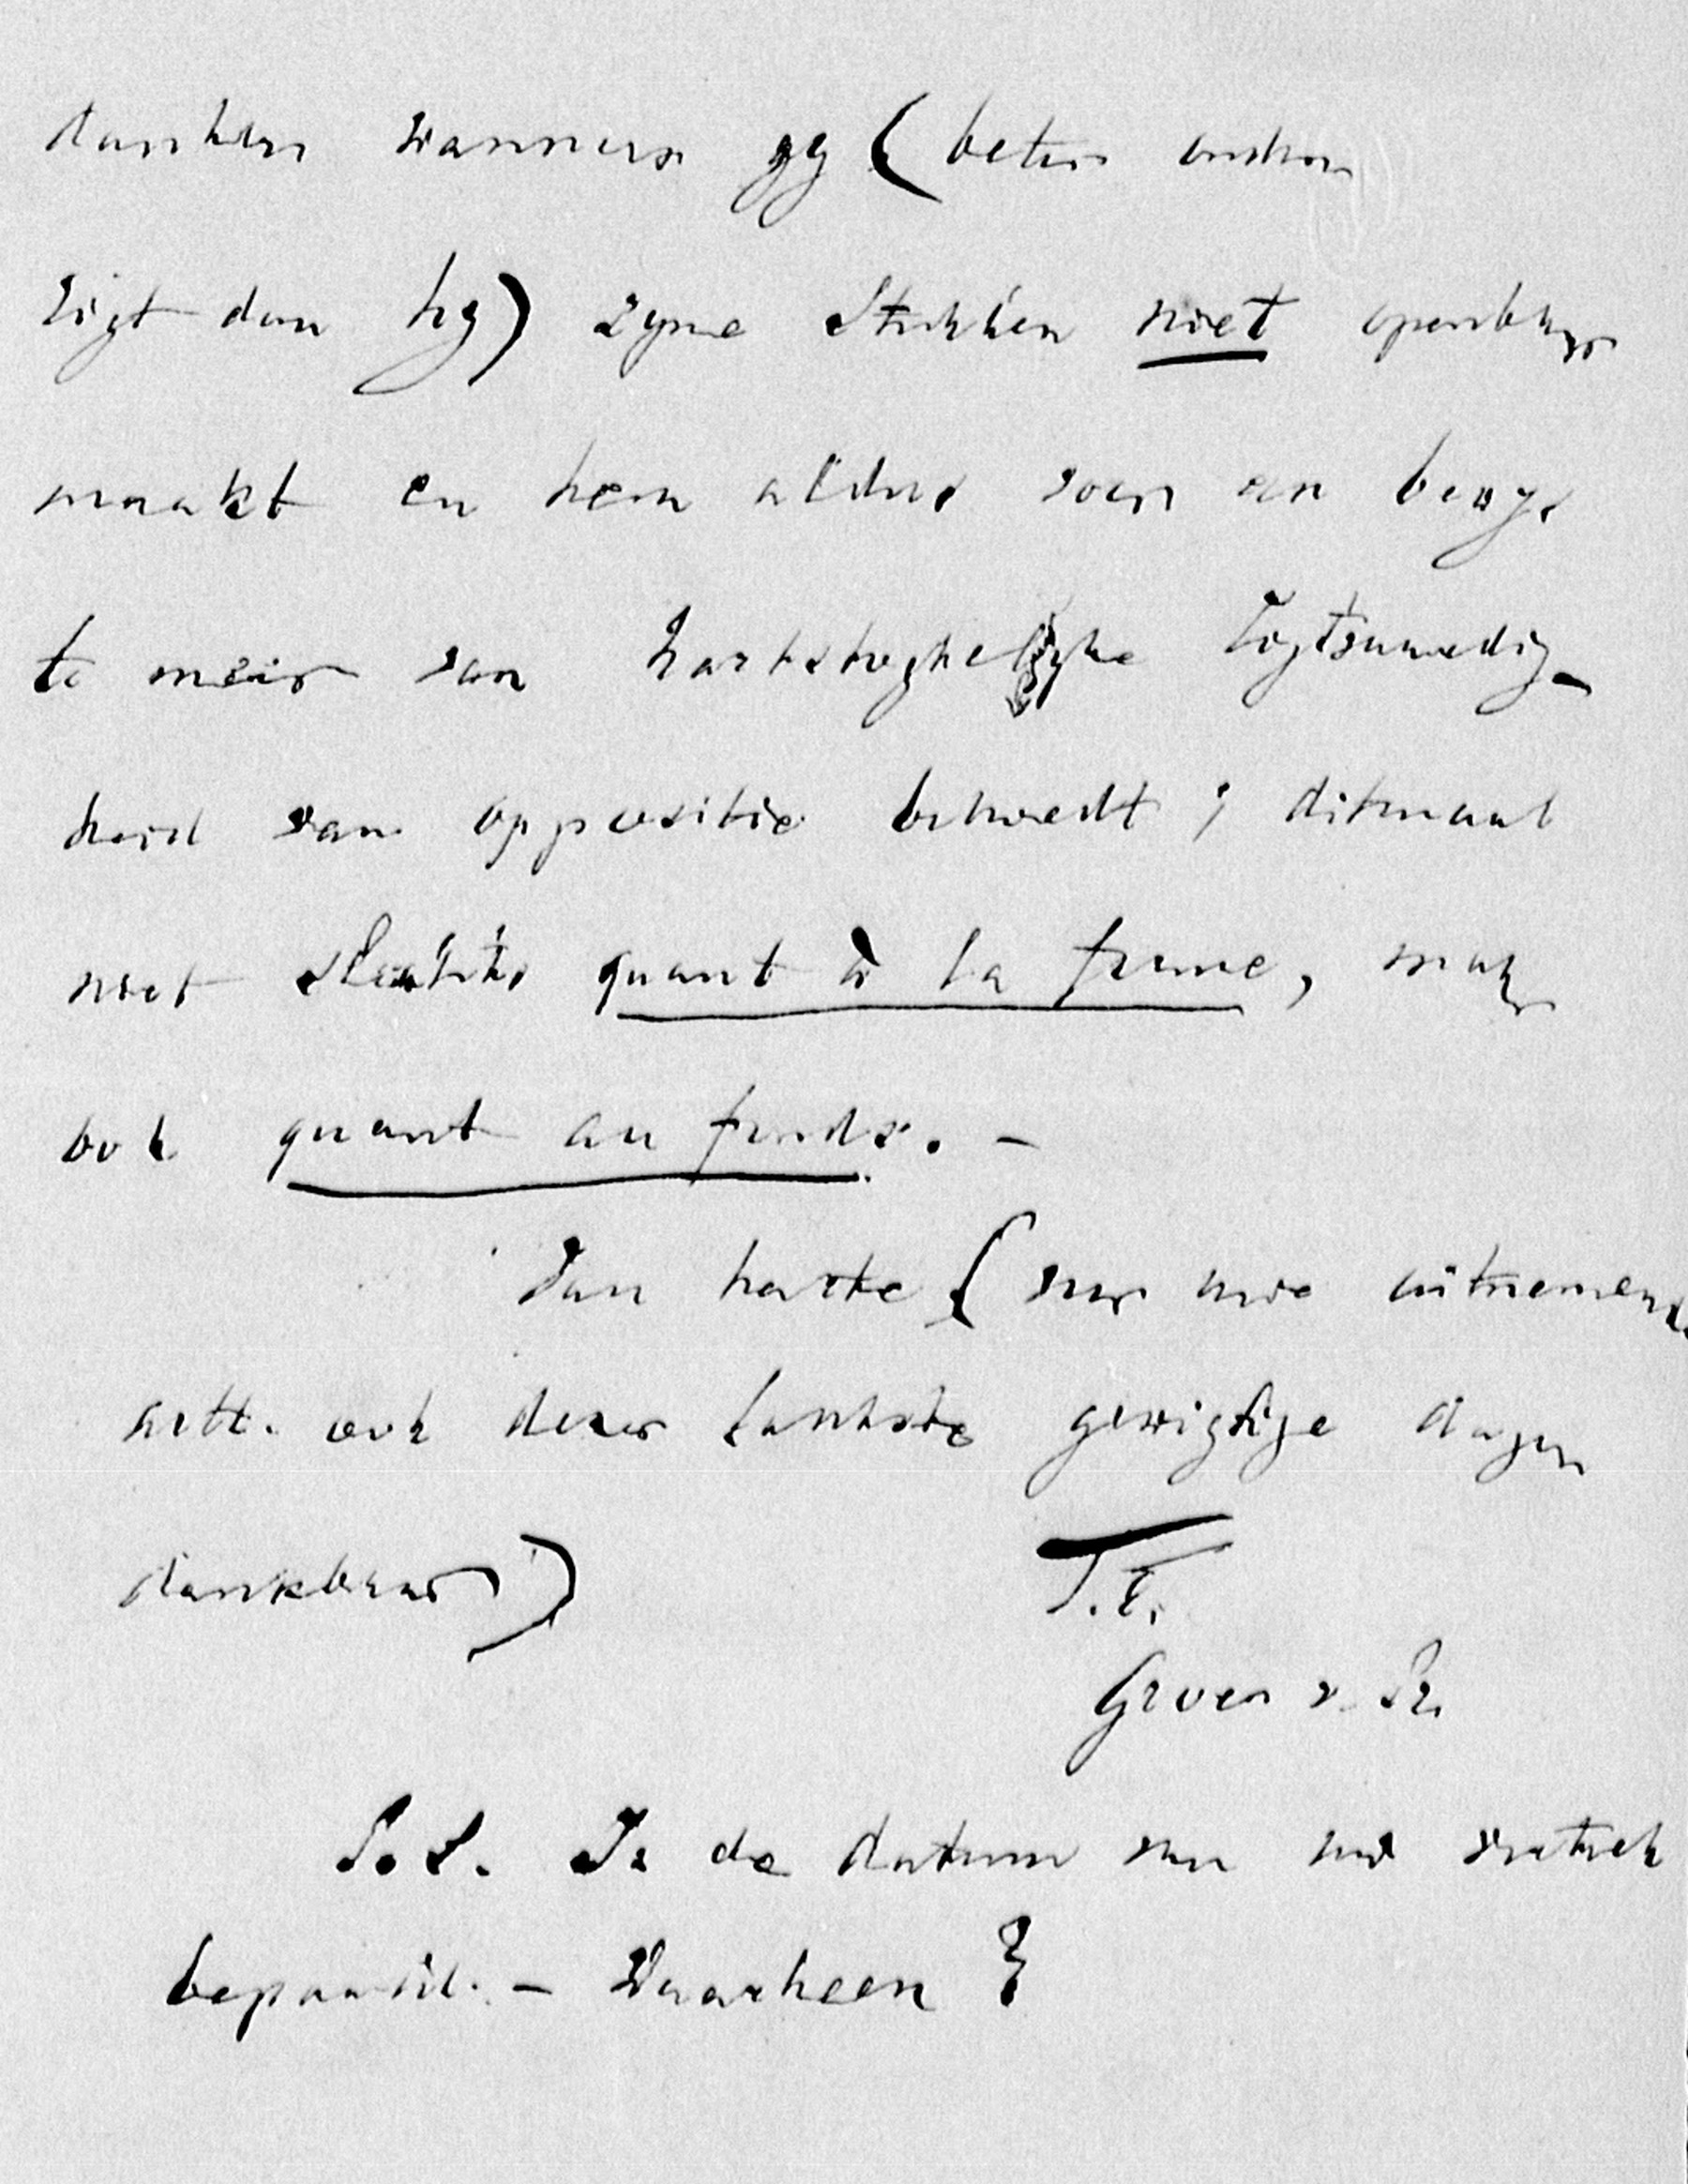 danken wanneer gy (beter onder-
rigt dan hy) zyne stukken niet openbaar
maakt en hem aldus voor een bewys
te meer van hartstogtelyke
heid van oppositie behoedt; ditmaal
niet slechts quant à la forme, maar
ook quant au fonds. —
Van harte (voor uwe uitnemende
ook dezer laatste gewigtige dagen
dankbaar)
T.t.
Groen v. Pr.
P.S. Is de datum van uw vertrek
bepaald. — Waarheen?